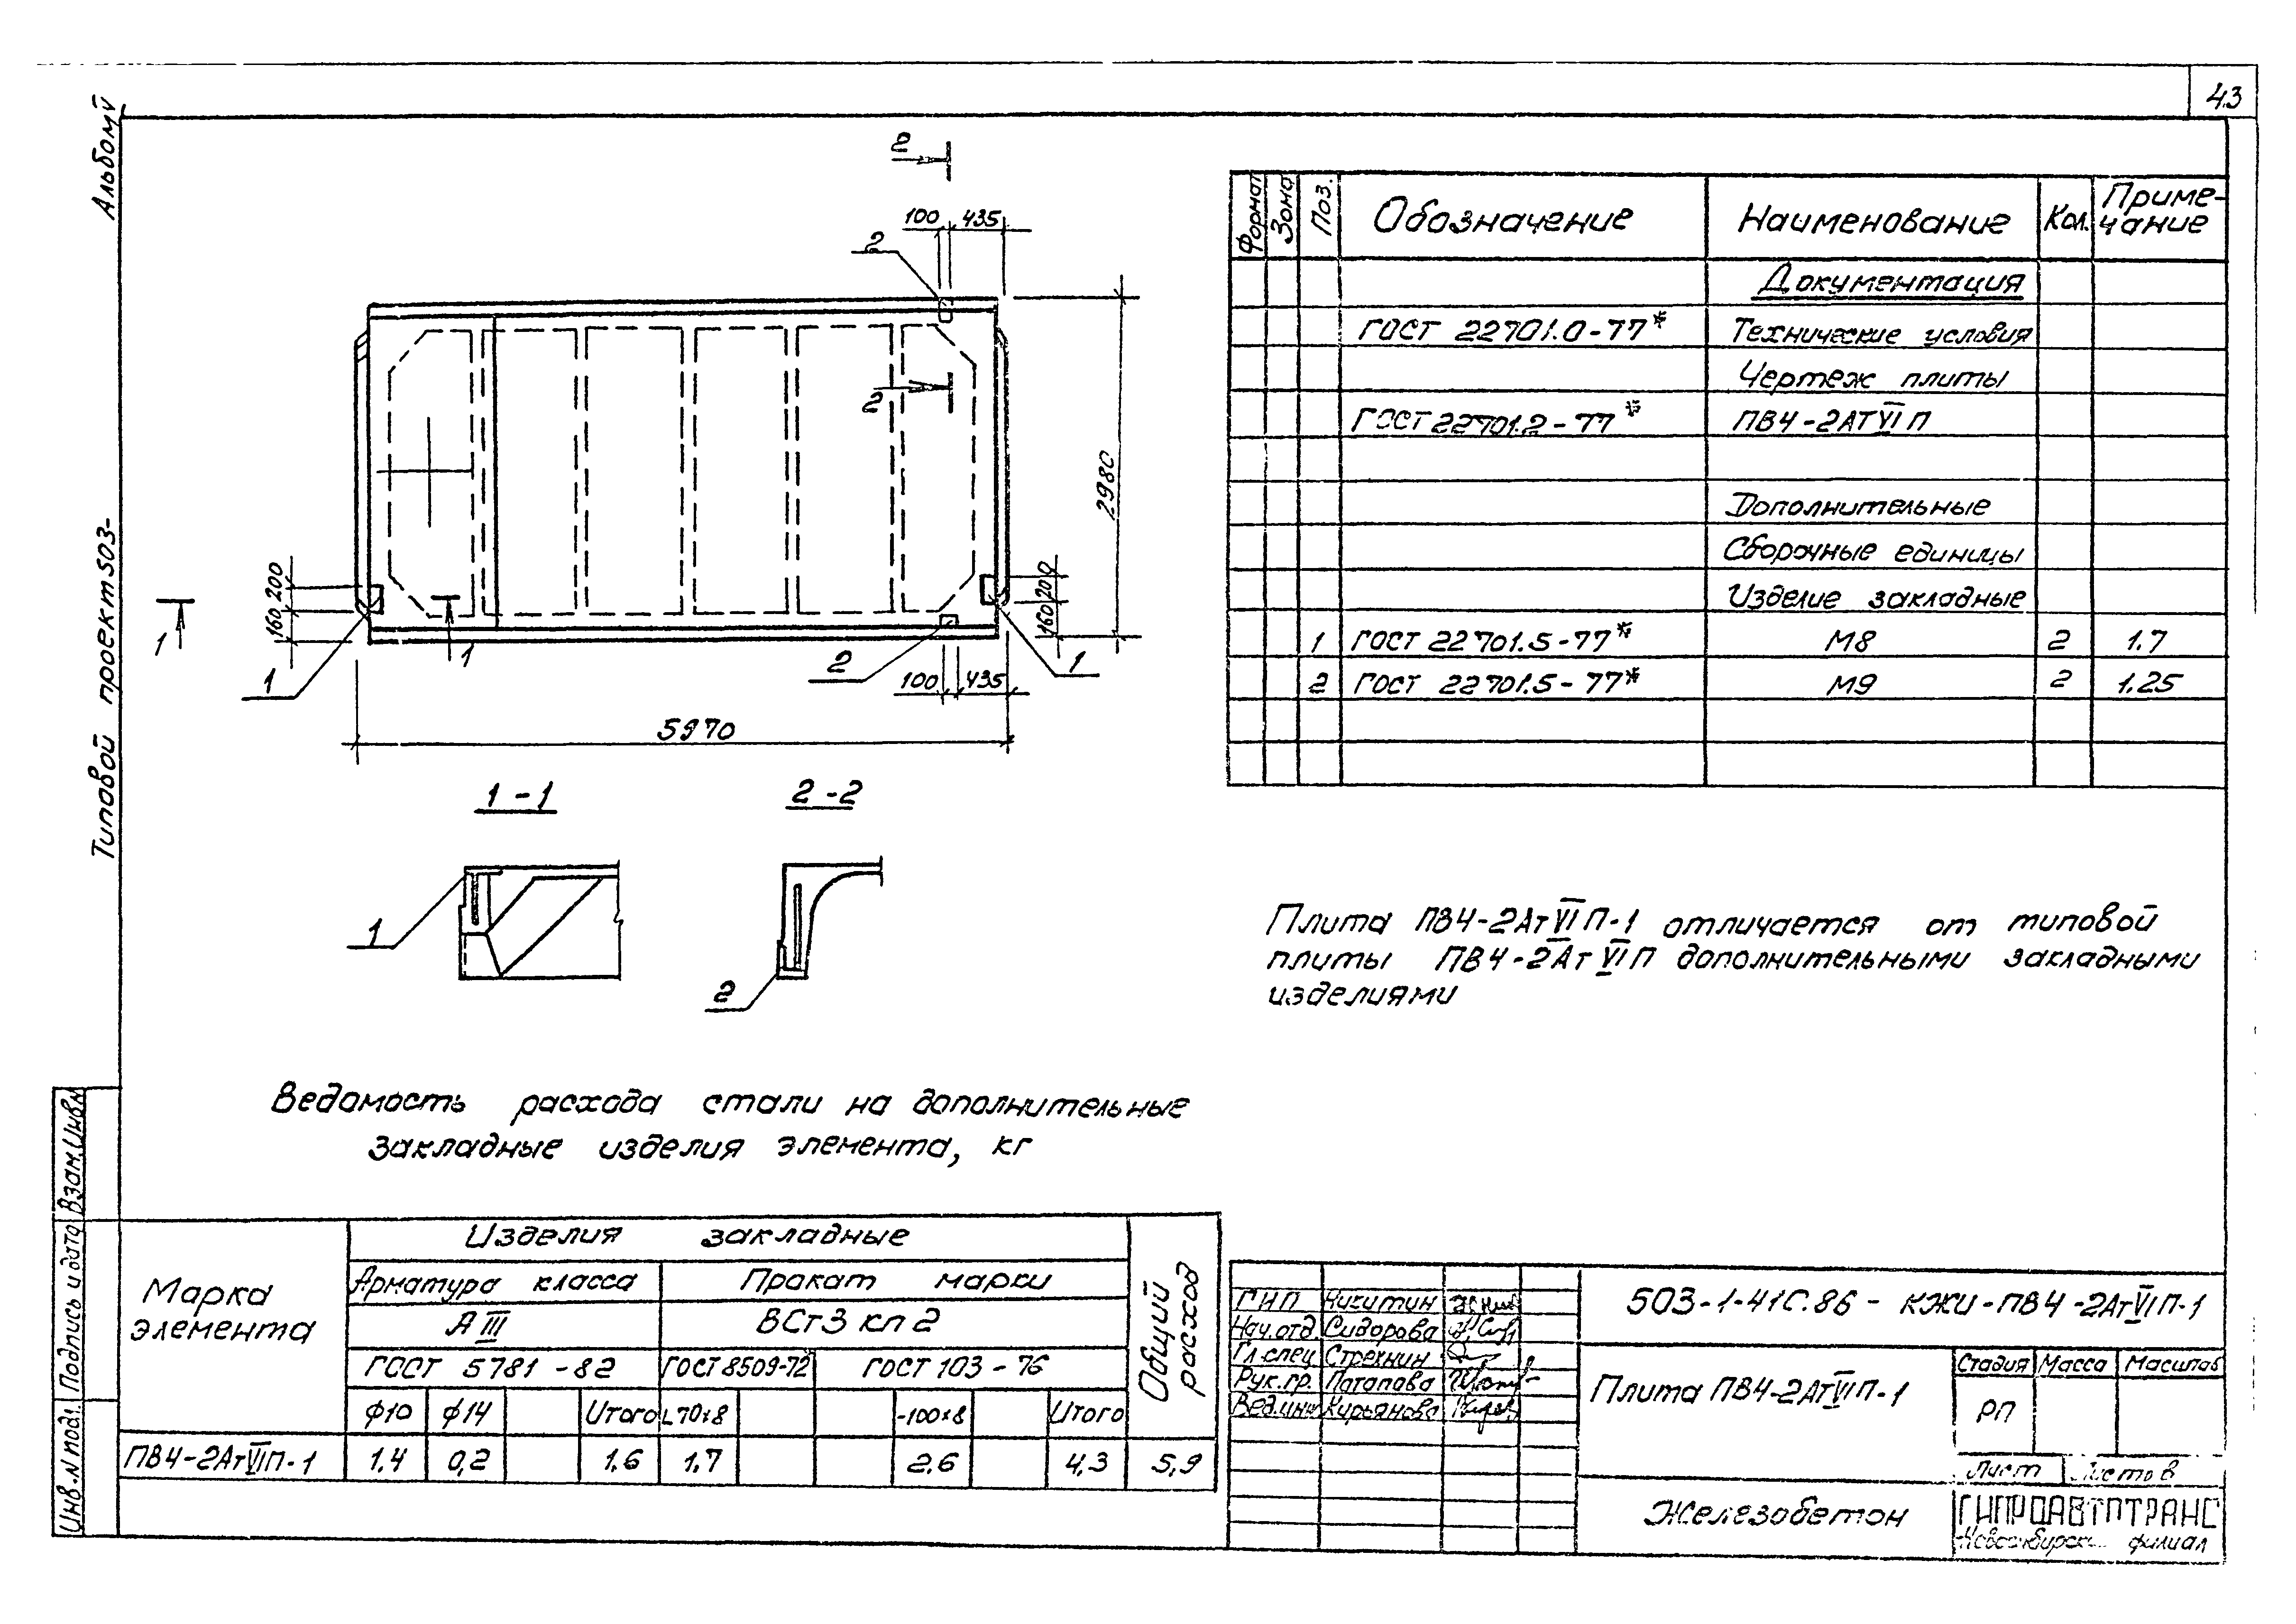 43
Альбом V
Типовой проект 503-
Инв. N подл.
Подпись и дата
Взам. Инв. N
2
100
435
2
2
2980
200
160
1
1
1
200
160
1
2
100
435
5970
1-1
2-2
1
2
Формат
Зона
Поз.
Обозначение
Наименование
Кол.
Приме-
чание
Документация
ГОСТ 22701.0-77* Технические условия
Чертеж плиты
ГОСТ 22701.2-77* ПВ4-2АТVIП
Дополнительные
Сборочные единицы
Изделие закладные
1 ГОСТ 22701.5-77* М8 2 1.7
2 ГОСТ 22701.5-77* М9 2 1.25
Плита ПВ4-2АтVIП-1 отличается от типовой
плиты ПВ4-2АтVIП дополнительными закладными
изделиями
Ведомость расхода стали на дополнительные
закладные изделия элемента, кг
Марка
элемента
Изделия закладные
Общий
расход
Арматура класса
Прокат марки
А III
ВСт3 кп2
ГОСТ 5781-82
ГОСТ 8509-72
ГОСТ 103-76
ф10 ф14 Итого L70х8 -100х8 Итого
ПВ4-2АтVIП-1 1.4 0,2 1.6 1,7 2.6 4,3 5,9
ГИП Никитин
Нач.отд. Сидорова
Гл.спец. Стрехнин
Рук.гр. Потапова
Вед.инж Кирьянова
503-1-41С.86-КЖИ-ПВ4-2АтVIП-1
Плита ПВ4-2АтVIП-1
Стадия Масса Масштаб
РП
Лист Листов
Железобетон
ГИПРОАВТОТРАНС
Новосибирск. филиал